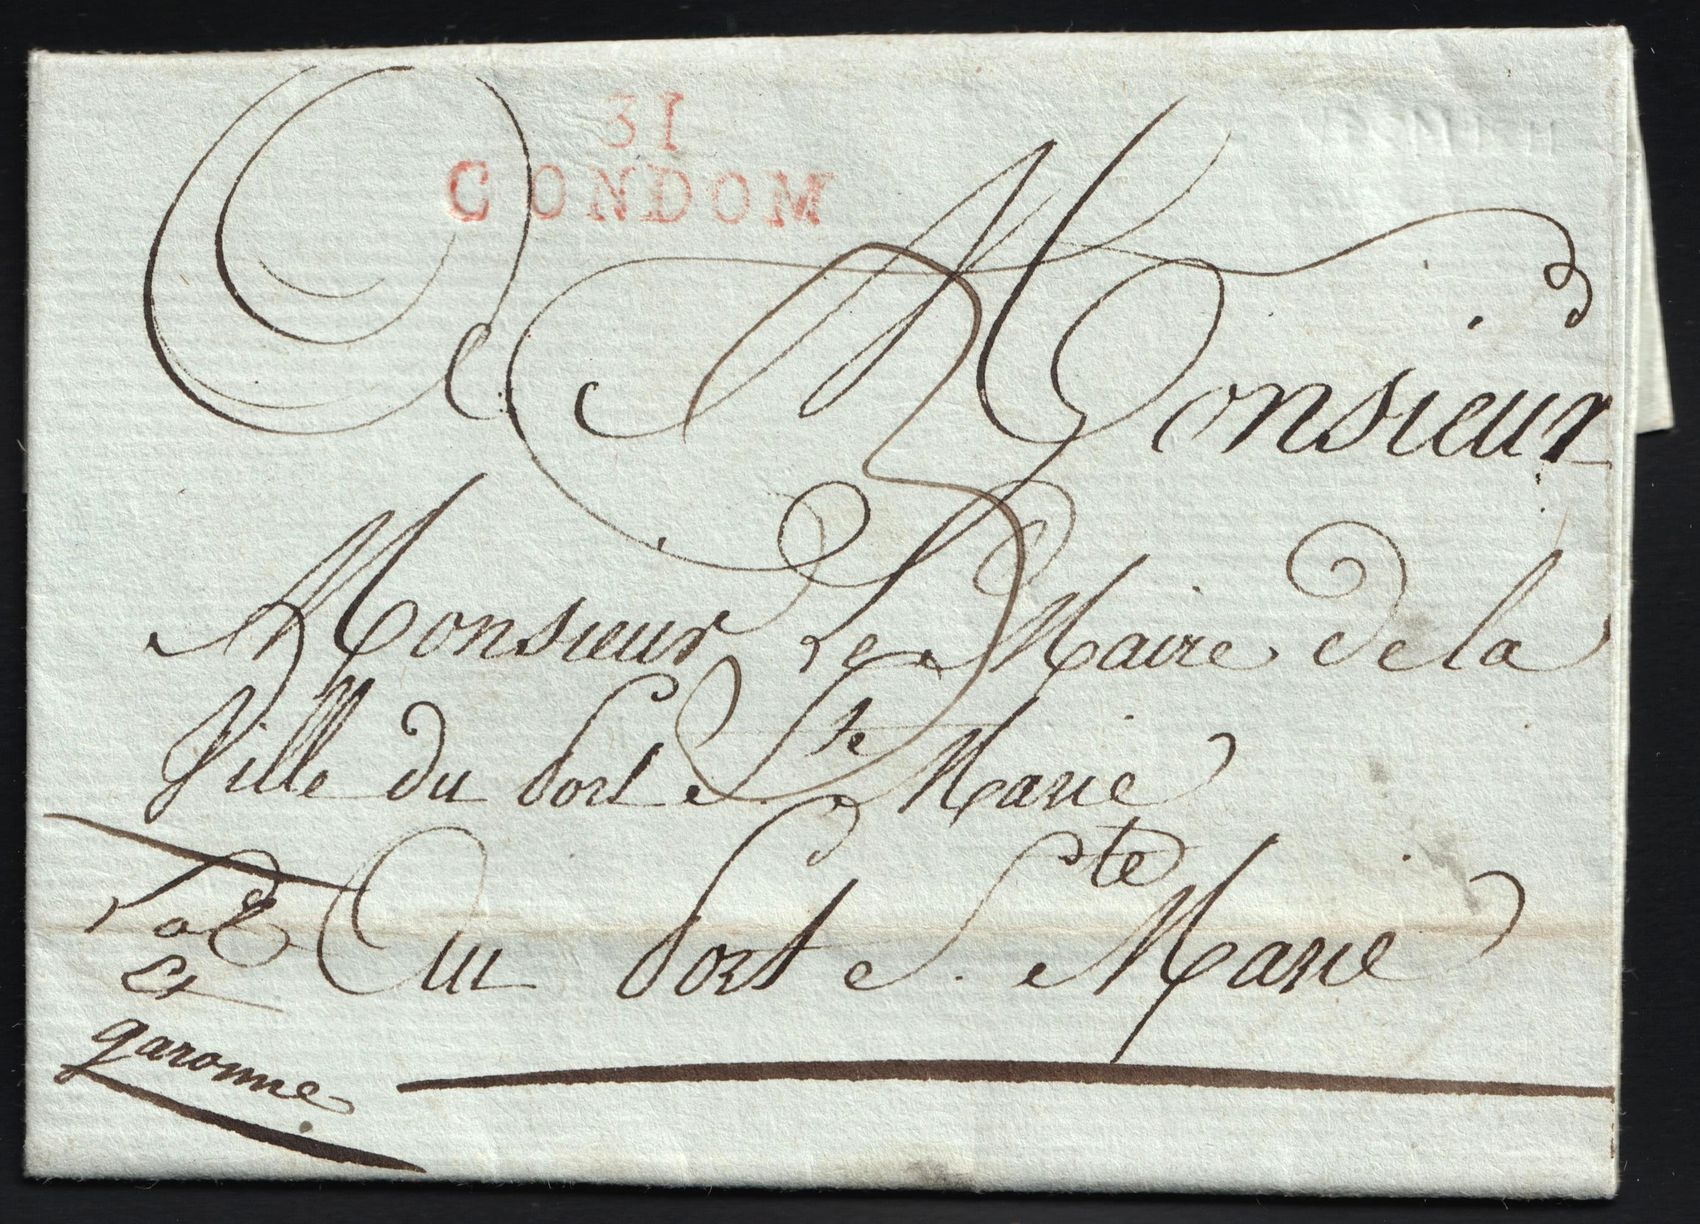 31
CONDOM
A Monsieur
Monsieur Le Maire de la
Ville du Port Ste Marie
Lot Au Port Ste Marie
et
garonne